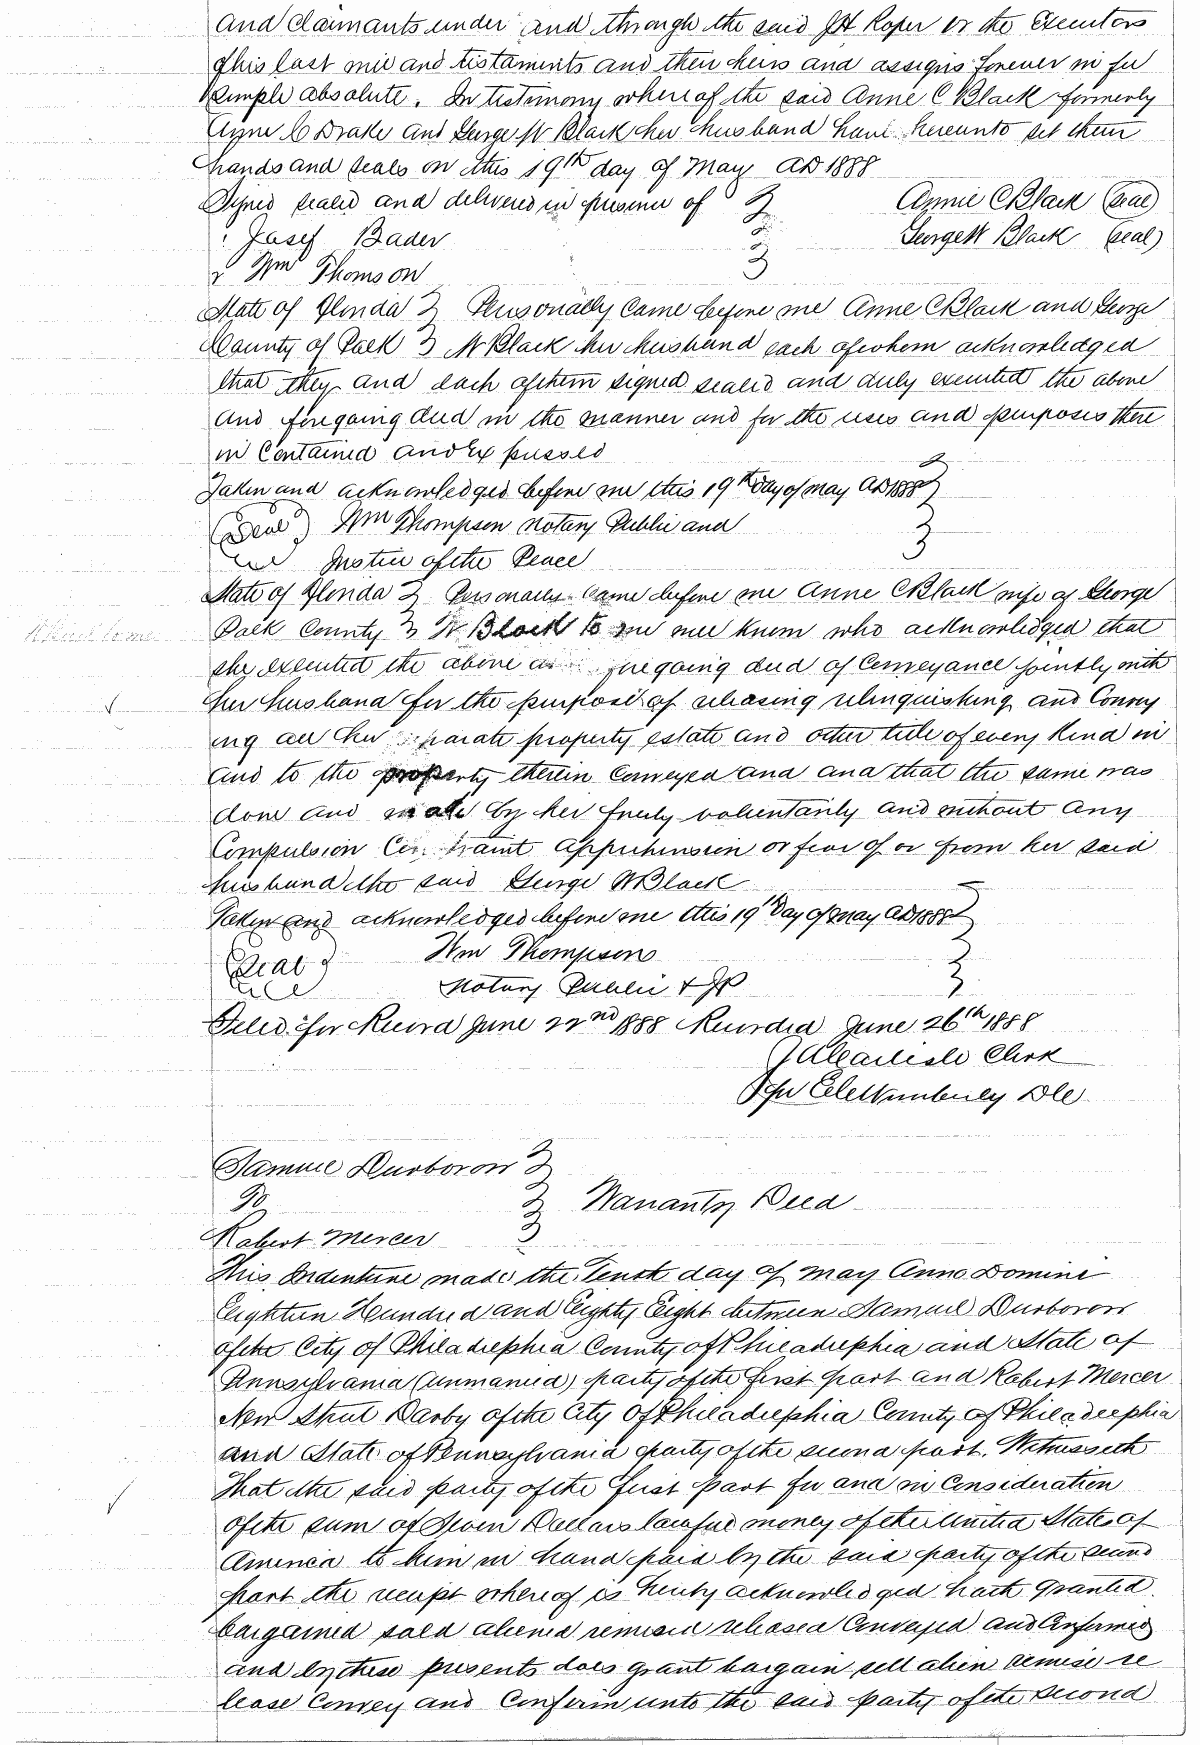 and claimants under and through the said JH Roper or the Executors
of his last will and testaments and their heirs and assigns forever in fee
simple absolute. In testimony whereof the said Anne C Black formerly
Anne C Drake and George W Black her husband have hereunto set them
hands and seals on this 19th day of May AD 1888
Signed sealed and delivered in presence of Annie C Black (seal)
Josef Bader George W Black (seal)
Wm Thomson
State of Florida Personally came before me Anne C Black and George
County of Polk W Black her husband each of whom acknowledged
that they and each of them signed sealed and duly executed the above
and foregoing deed in the manner and for the uses and purposes there
in contained and expressed
Taken and acknowledged before me this 19th day of may AD 1888
(Seal) Wm Thompson Notary Public and
Justice of the Peace
State of Florida Personally came before me Anne C Black wife of George
Polk County W Black to me well known who acknowledged that
she executed the above and foregoing deed of Conveyance jointly with
her husband for the purpose of releasing relinquishing and Convey
ing all her separate property estate and other title of every Kind in
and to the property therein conveyed and and that the same was
done and made by her freely voluntarily and without any
Compulsion Constraint apprehension or fear of or from her said
husband the said George W Black
Taken and acknowledged before me this 19th Day of may AD 1888
(Seal) Wm Thompson
Notary Public & JP
Filed for Record June 22nd 1888 Recorded June 26th 1888
Clerk
Per DC
Samuel Durborow
To Warranty Deed
Robert Mercer
This Indenture made the Tenth day of may Anno Domini
Eighteen Hundred and Eighty Eight between Samuel Durborow
of the City of Philadelphia County of Philadelphia and State of
Pennsylvania (unmarried) party of the first part and Robert Mercer
New Street Darby of the City of Philadelphia County of Philadelphia
and State of Pennsylvania party of the second part. Witnesseth
That the said party of the first part for and in consideration
of the sum of Seven Dollars lawful money of the United States of
America to him in hand paid by the said party of the second
part the receipt whereof is hereby acknowledged hath granted
bargained sold aliened remised released Conveyed and Confirmed
and by these presents does grant bargain sell alien remise re
lease Convey and Confirm unto the said party of the second